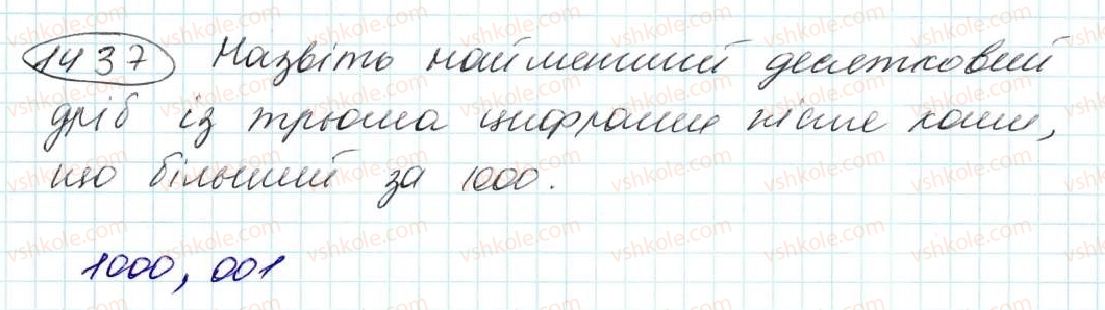 1437 Назвіть найменший десятковий
дріб із трьома цифрами після коми,
що більший за 1000.
1000,001